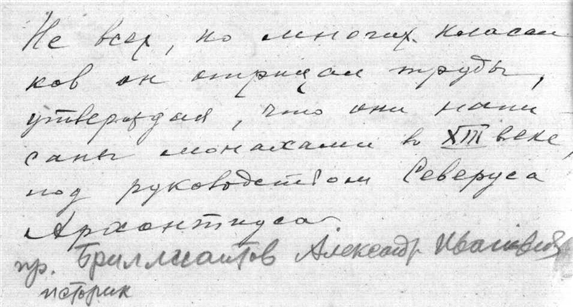 Не всех, но многих класси
ков он отрицал труды,
утверждая, что они напи
саны монахами в XIII веке,
под руководством Северуса
Архонтиуса
пр. Бриллиантов Александр Иванович
историк